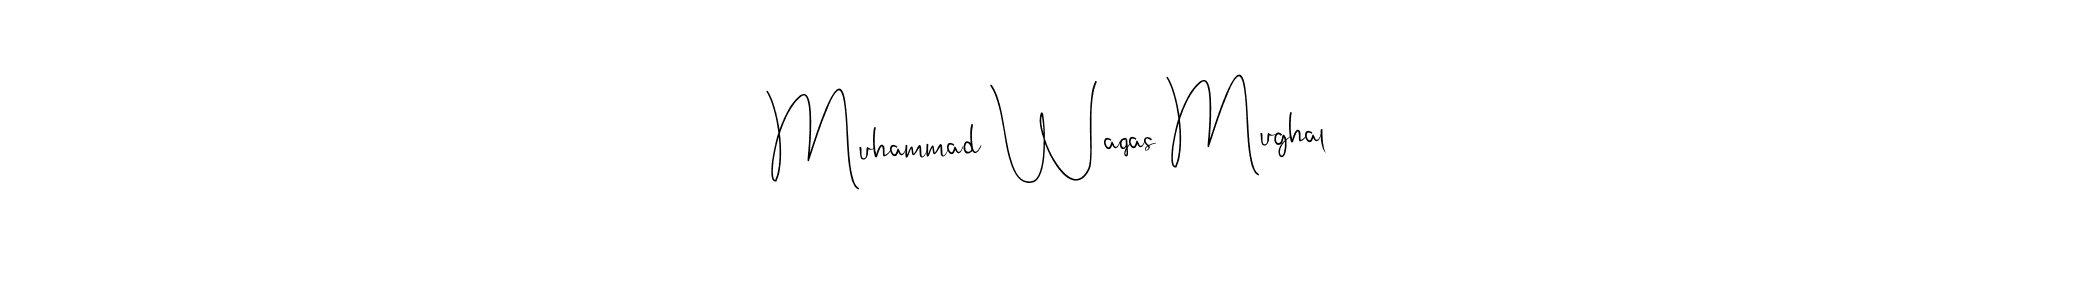 Muhammad Waqas Mughal